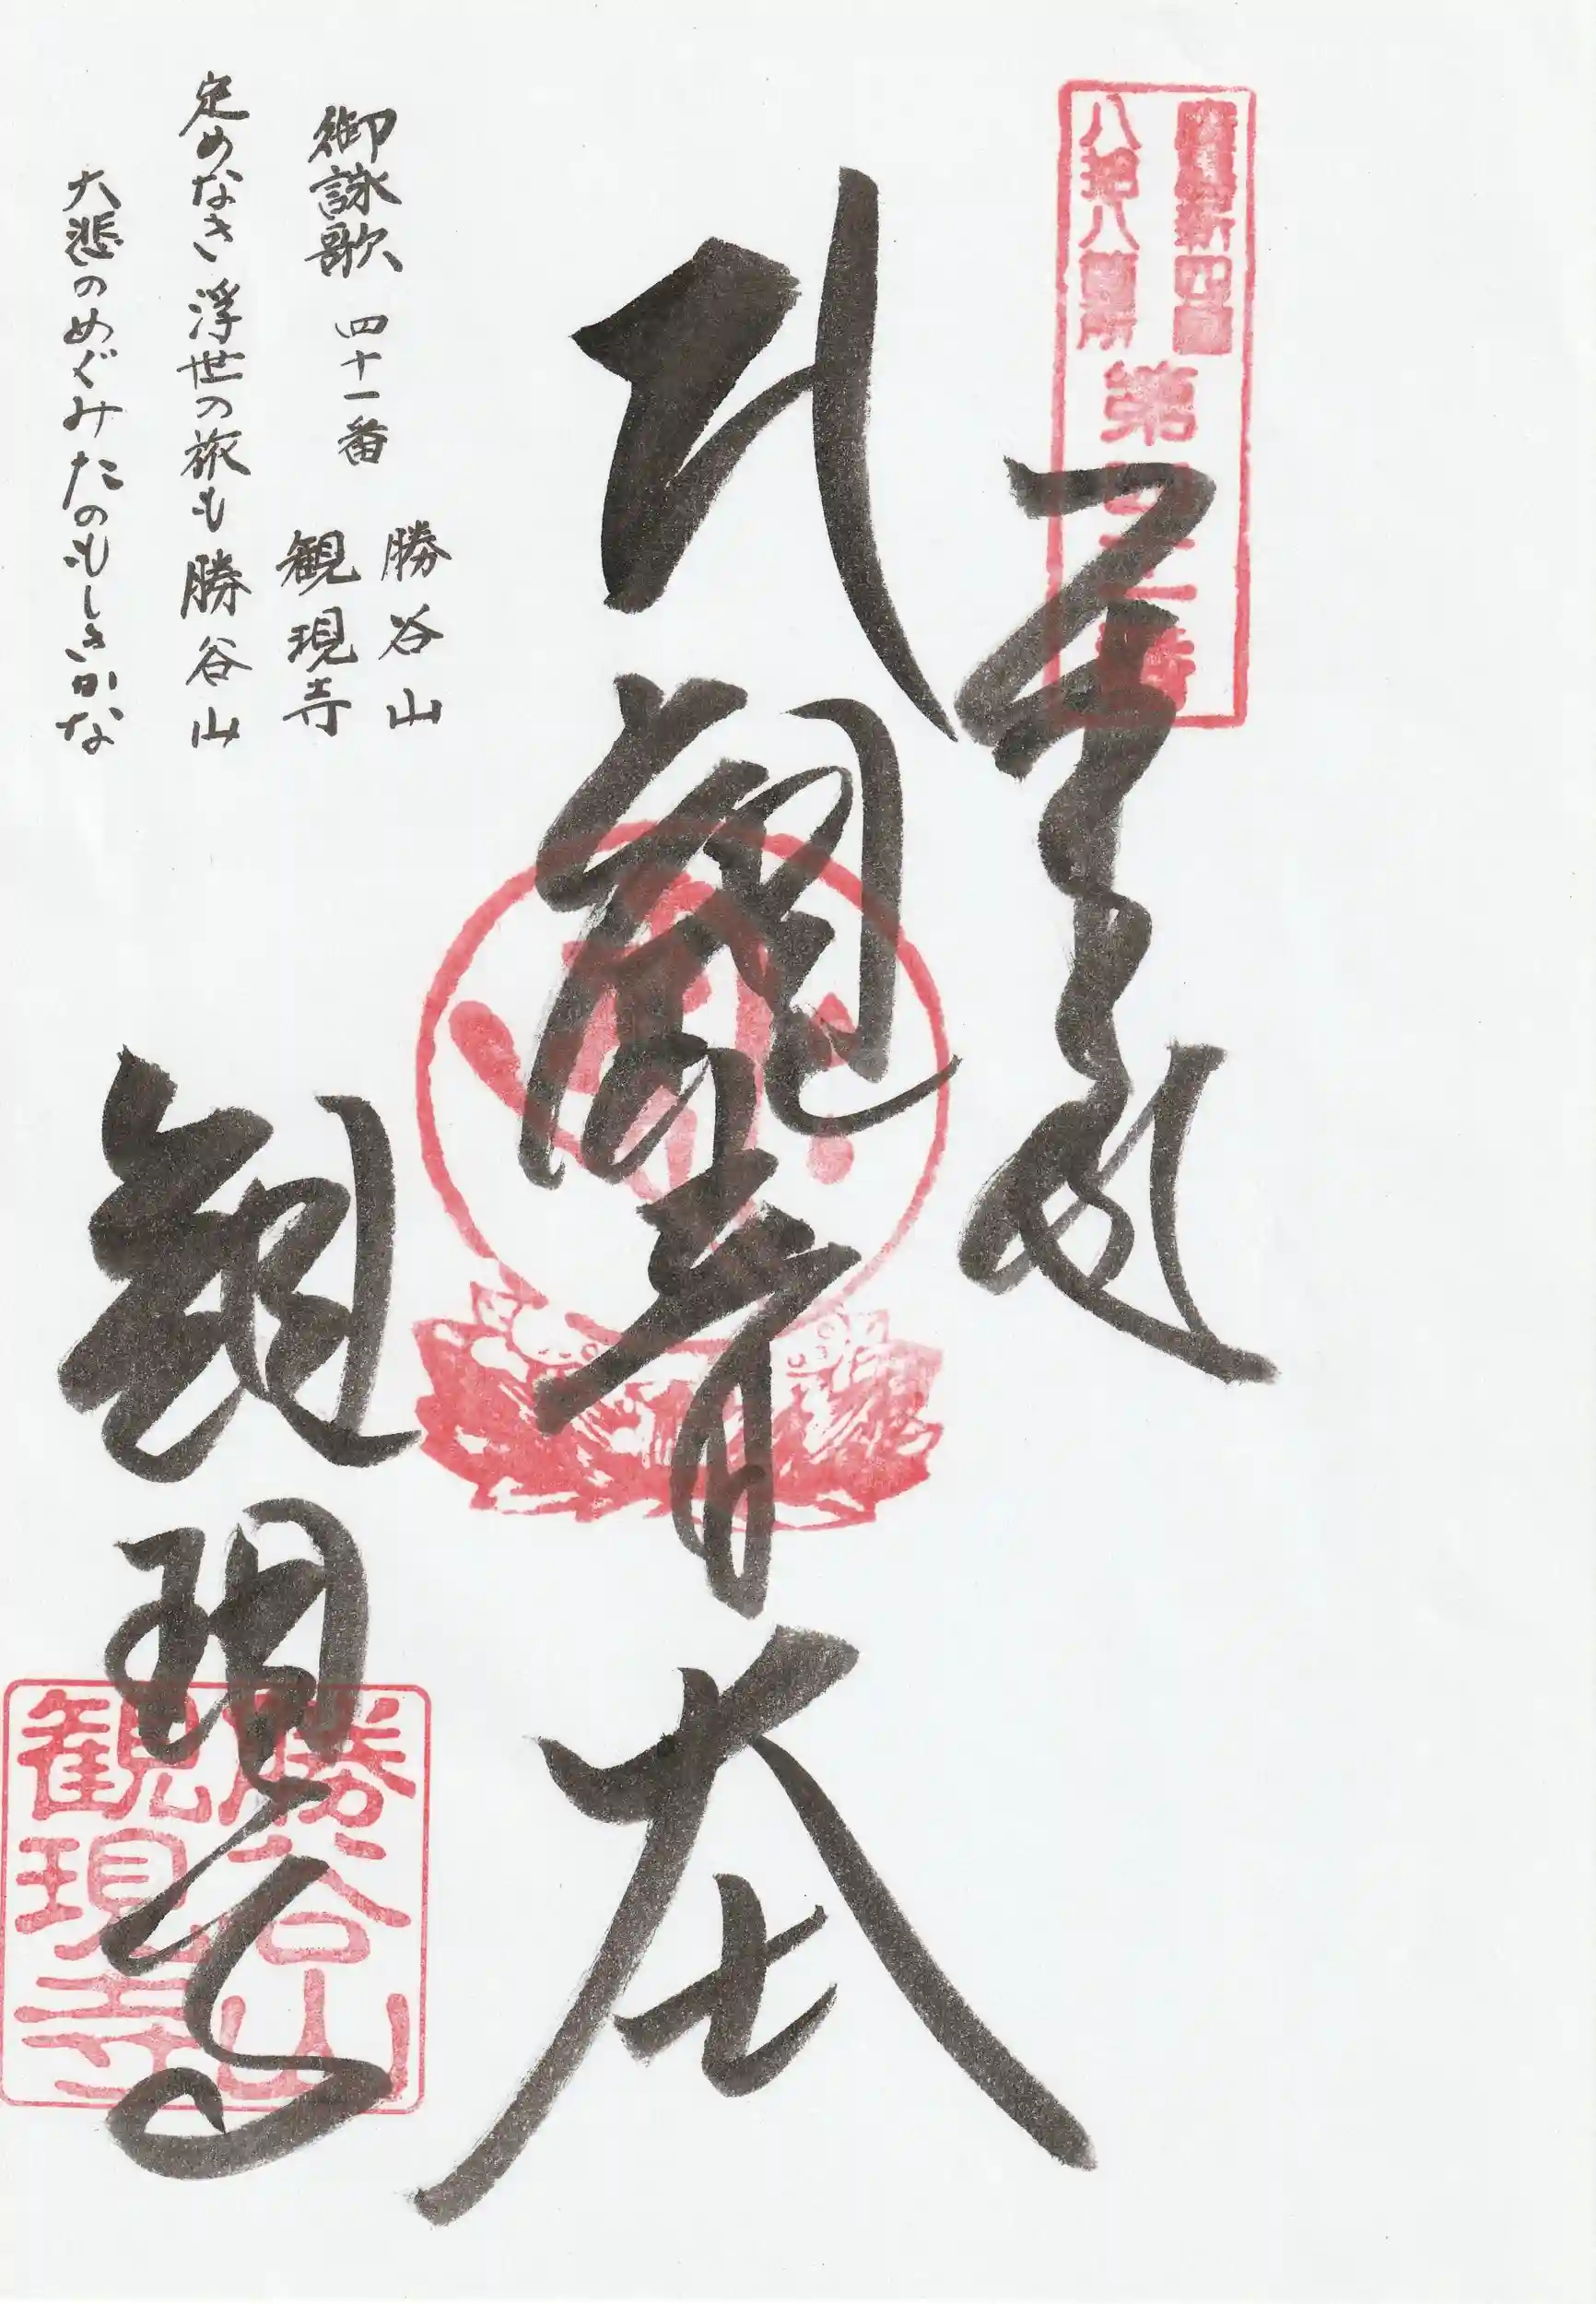 新四国
八拾八
第四十一番
観音大士
観現寺
勝谷山
観現寺
御詠歌 四十一番
勝谷山
観現寺
定めなき浮世の旅も勝谷山
大悲のめぐみたのもしきかな